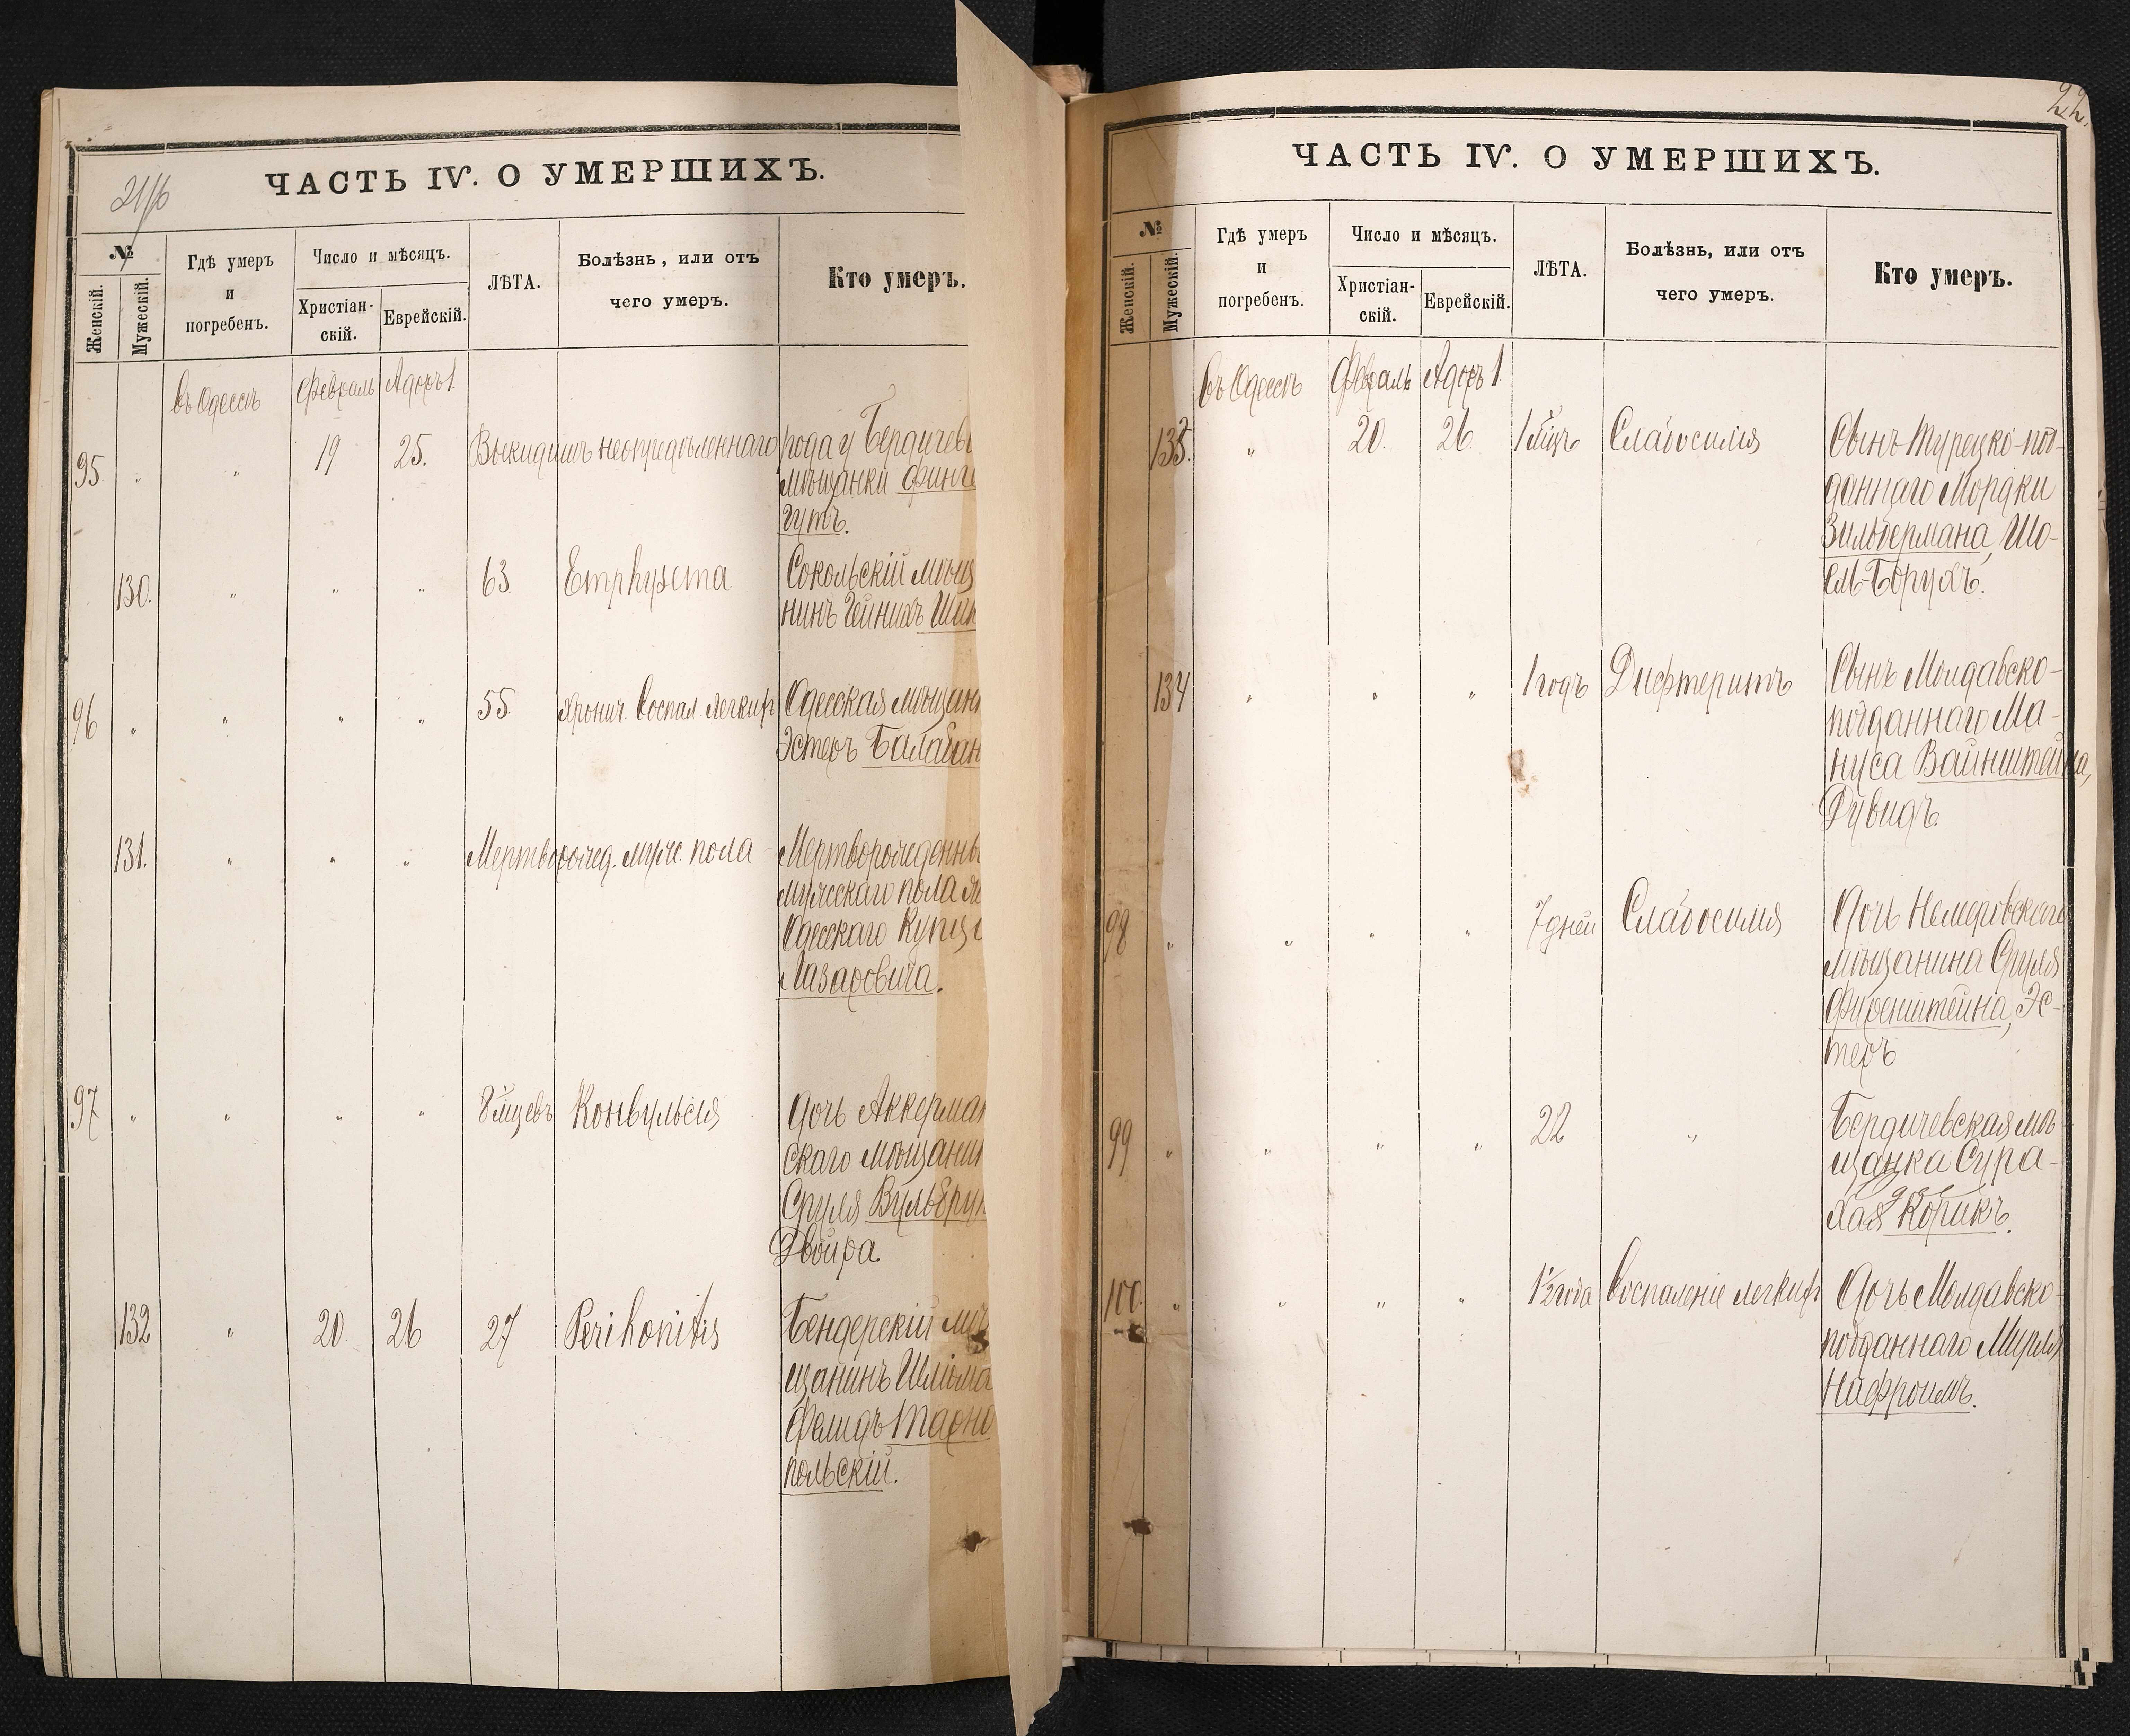 ЧАСТЬ IV. О УМЕРШИХЪ.
№
Женскій.
Мужескій.
Гдѣ умеръ
и
погребенъ.
Число и мѣсяцъ.
Христіан-
скій.
Еврейскій.
ЛѢТА.
Болѣзнь, или отъ
чего умеръ.
Кто умеръ.
въ Одессѣ Февраль Адоръ 1
95 " " 19 25. Выкидышъ неопредѣленнаго рода у Бердичевс
мѣщанки
Гутъ.
130. " " " 63 Emphysema Сокольскій мѣща
нинъ Гейнихъ
96 " " " " 55. Хронич. воспал. легкихъ Одесская мѣщан
Эстеръ Балабан
131. " " " Мертворожд. муж. пола Мертворожденны
мужескаго пола
Одесскаго Купца
Лазаровича.
97 " " " " 8 мцевъ Конвульсія Дочь Аккерман
скаго мѣщанин
Сруля
Двойра
132 " 20 26 27 Peritonitis Бендерскій мѣ
щанинъ Шлiома
Тарно
польскій.
22.
ЧАСТЬ IV. О УМЕРШИХЪ.
№
Женскій.
Мужескій.
Гдѣ умеръ
и
погребенъ.
Число и мѣсяцъ.
Христіан-
скій.
Еврейскій.
ЛѢТА.
Болѣзнь, или отъ
чего умеръ.
Кто умеръ.
въ Одессѣ Февраль Адоръ 1
133. " 20. 26. 1 мцъ Слабосилія Сынъ Турецко-под-
даннаго Мордки
Зильбермана, Шо-
ель-Борухъ.
134 " " " 1 годъ Дифтеритъ Сынъ Молдавско-
подданнаго Ма-
нуса Вайнштейна,
Дувидъ.
98 " " " " 7 дней Слабосилія Дочь Немеровскаго
мѣщанина Сруля
Фуренштейна, Эс-
теръ
99 " " " " 22 " Бердичевская мѣ
щанка Сура-
Хая Корикъ.
100. " " " " 1½ года Воспаленіе легкихъ Дочь Молдавско-
подданнаго
Нафроимъ.